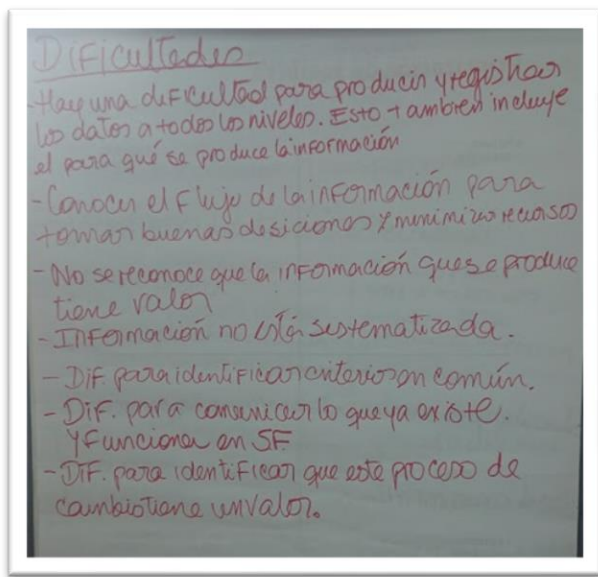 Dificultades
- Hay una dificultad para producir y registrar
los datos a todos los niveles. Esto también incluye
el para qué se produce la información
- Conocer el flujo de la información para
tomar buenas desiciones y minimizar recursos
- No se reconoce que la información que se produce
tiene valor
- Información no está sistematizada.
- Dif. para identificar criterios en común.
- Dif. para comunicar lo que ya existe.
y Funciona en SF
- Dif. para identificar que este proceso de
cambio tiene un valor.